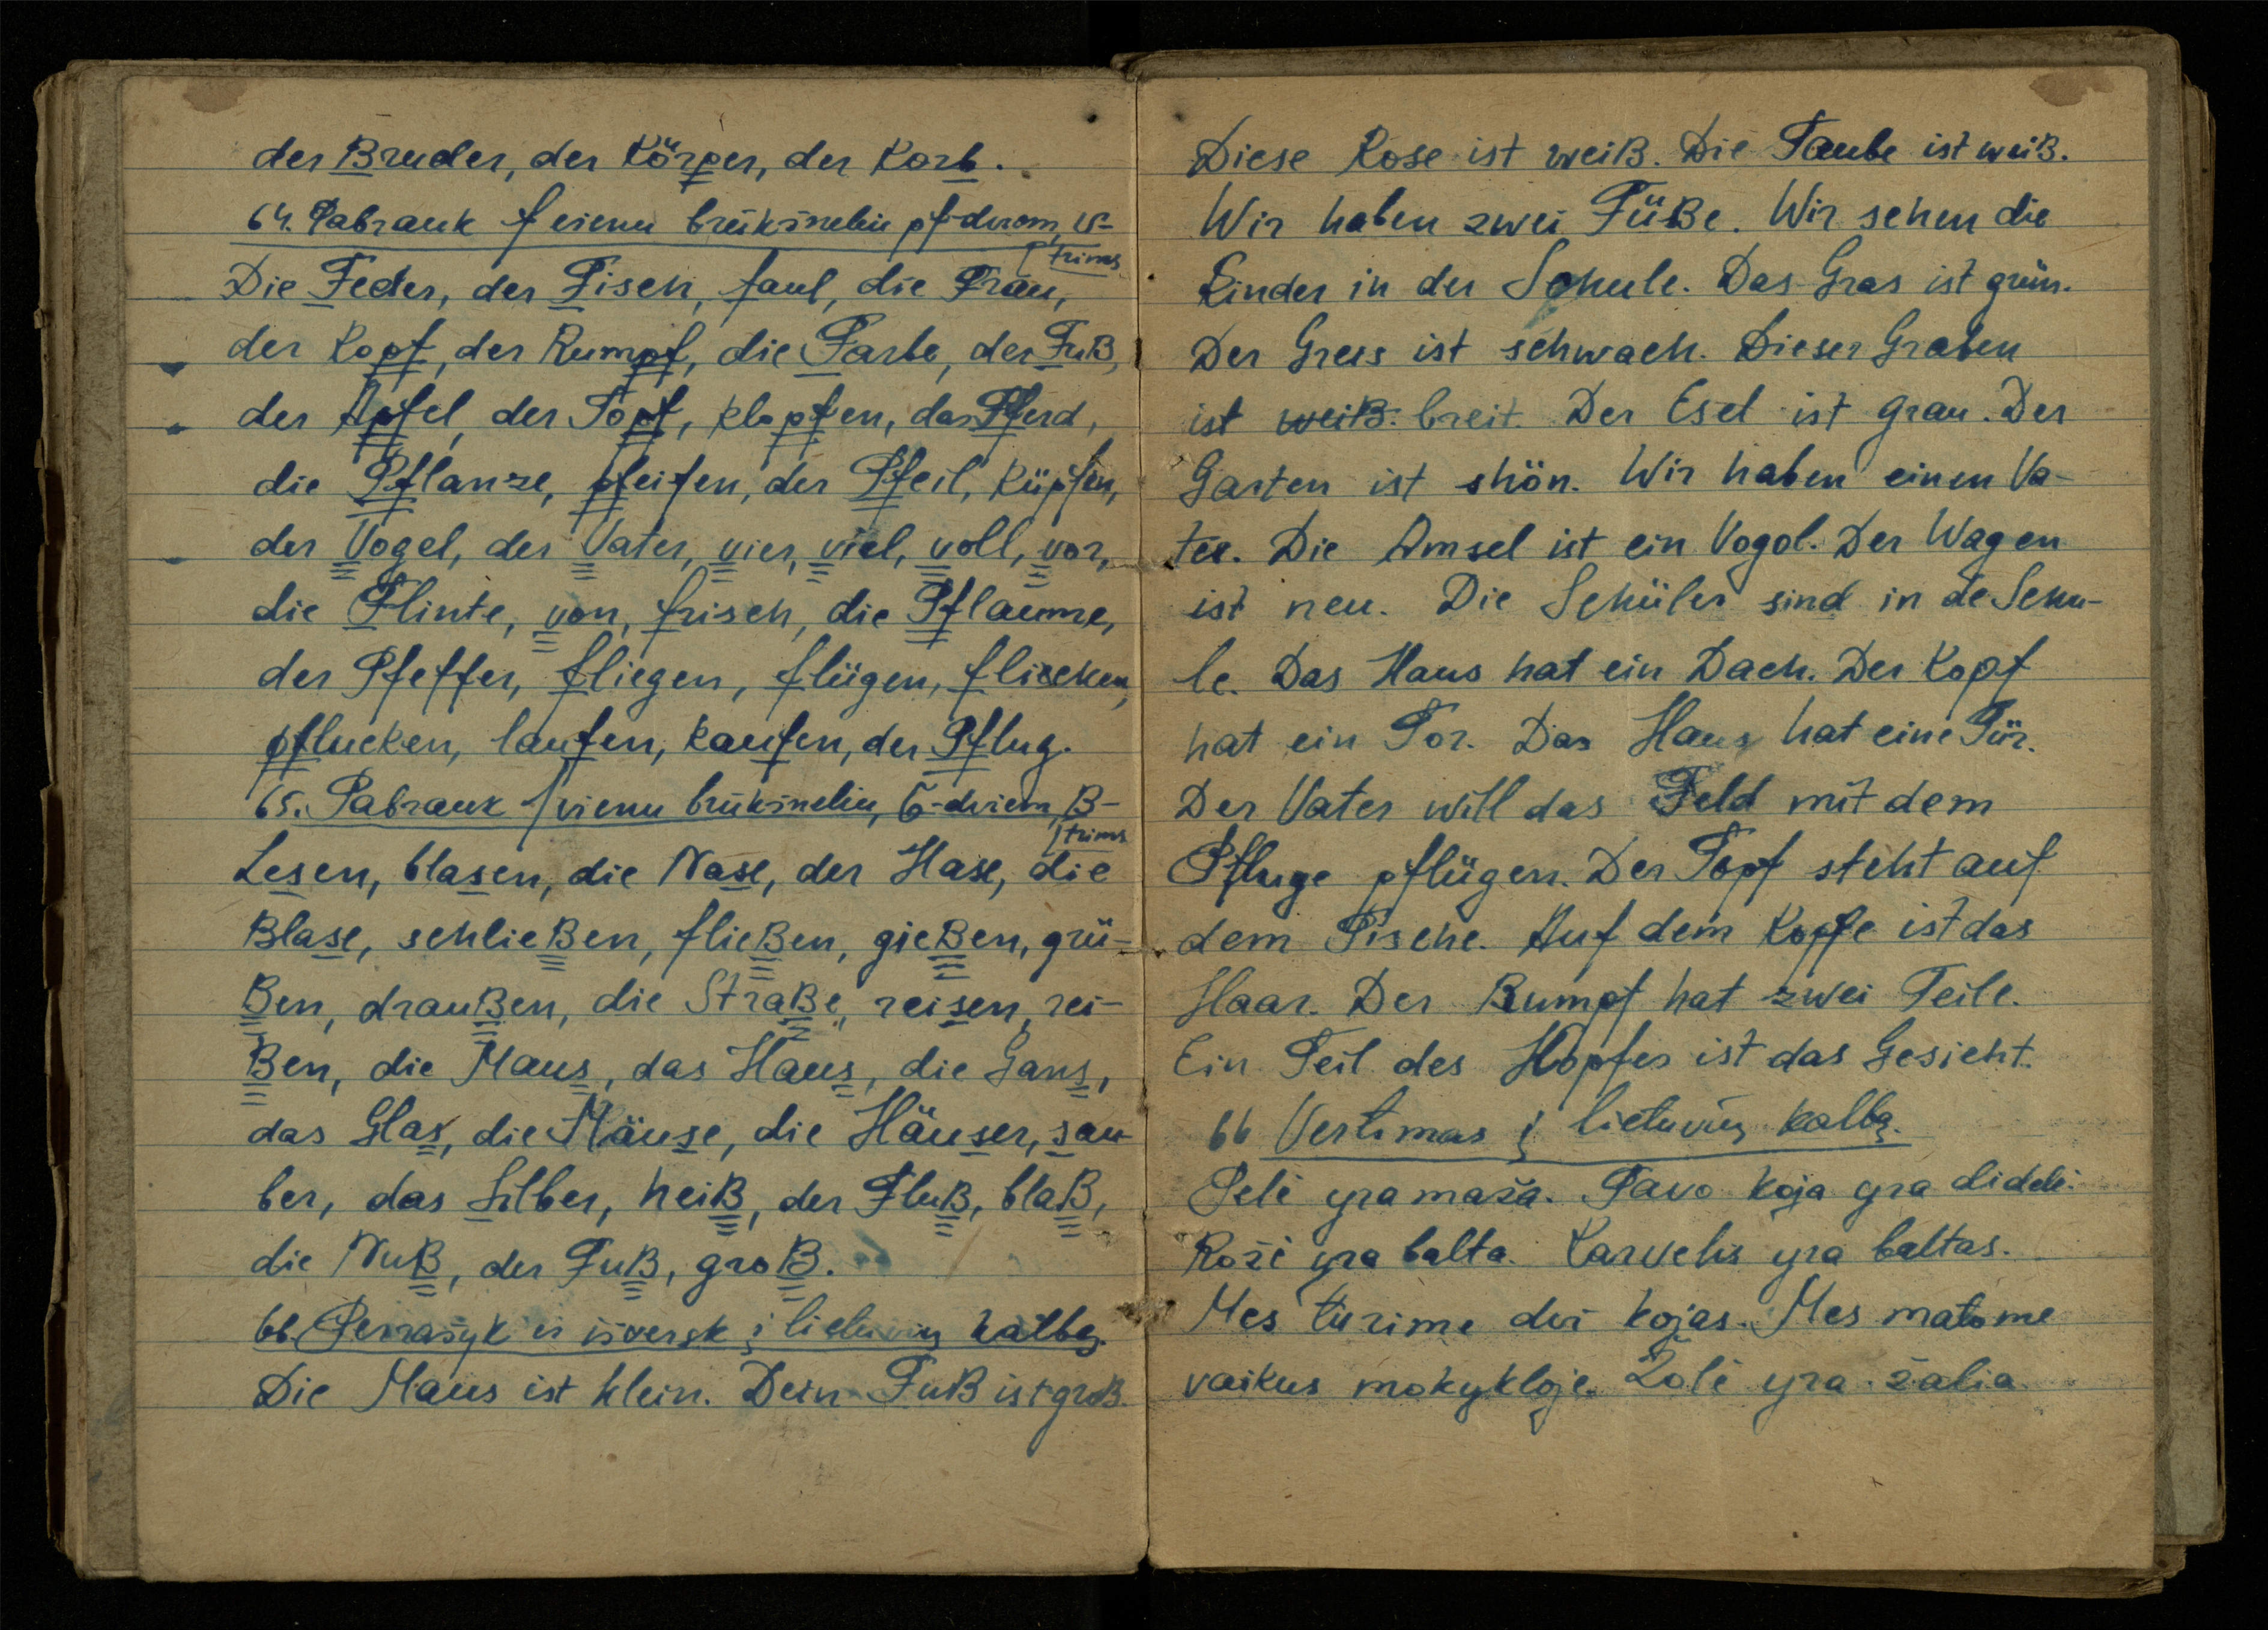 der Bruder, der Körper, der Korb.
64. Pabrauk f vienu brūkšneliu pf-dviem, v-
trims
Die Feder, der Fisch, faul, die Frau,
der Kopf, der Rumpf, die Farbe, der Fuß,
der Apfel, der Topf, klopfen, das Pferd,
die Pflanze, pfeifen, der Pfeil, küpfen,
der Vogel, der Vater, vier, viel, voll, vor,
die Flinte, von, frisch, die Pflaume,
der Pfeffer, fliegen, flügen, flicken,
pflucken, laufen, kaufen, der Pflug.
65. Pabrauk ſ vienu brūkšneliu, s-dviem, ß-
trims
Lesen, blasen, die Nase, der Hase, die
Blase, schließen, fließen, gießen, grü-
ßen, draußen, die Straße, reisen, rei-
ßen, die Maus, das Haus, die Gans,
das Glas, die Mäuse, die Häuser, sau-
ber, das Silber, heiß, der Fluß, blaß,
die Nuß, der Fuß, groß.
66. Perrašyk ir išversk į lietuvių kalbą.
Die Maus ist klein. Dein Fuß ist groß.
Diese Rose ist weiß. Die Taube ist weiß.
Wir haben zwei Füße. Wir sehen die
Kinder in der Schule. Das Gras ist grün.
Der Greis ist schwach. Dieser Graben
ist weiß. breit. Der Esel ist grau. Der
Garten ist shön. Wir haben einen Va-
ter. Die Amsel ist ein Vogol. Der Wagen
ist neu. Die Schüler sind in de Schu-
le. Das Haus hat ein Dach. Der Kopf
hat ein Tor. Das Haus hat eine Tür.
Der Vater will das Feld mit dem
Pfluge pflügen. Der Topf steht auf
dem Tische. Auf dem Kopfe ist das
Haar. Der Rumpf hat zwei Teile.
Ein Teil des Kopfes ist das Gesicht.
66 Vertimas į lietuvių kalbą.
Pelė yra maža. Tavo koja yra didelė.
Rožė yra balta. Karvelis yra baltas.
Mes turime dvi kojas. Mes matome
vaikus mokykloje. Žolė yra žalia